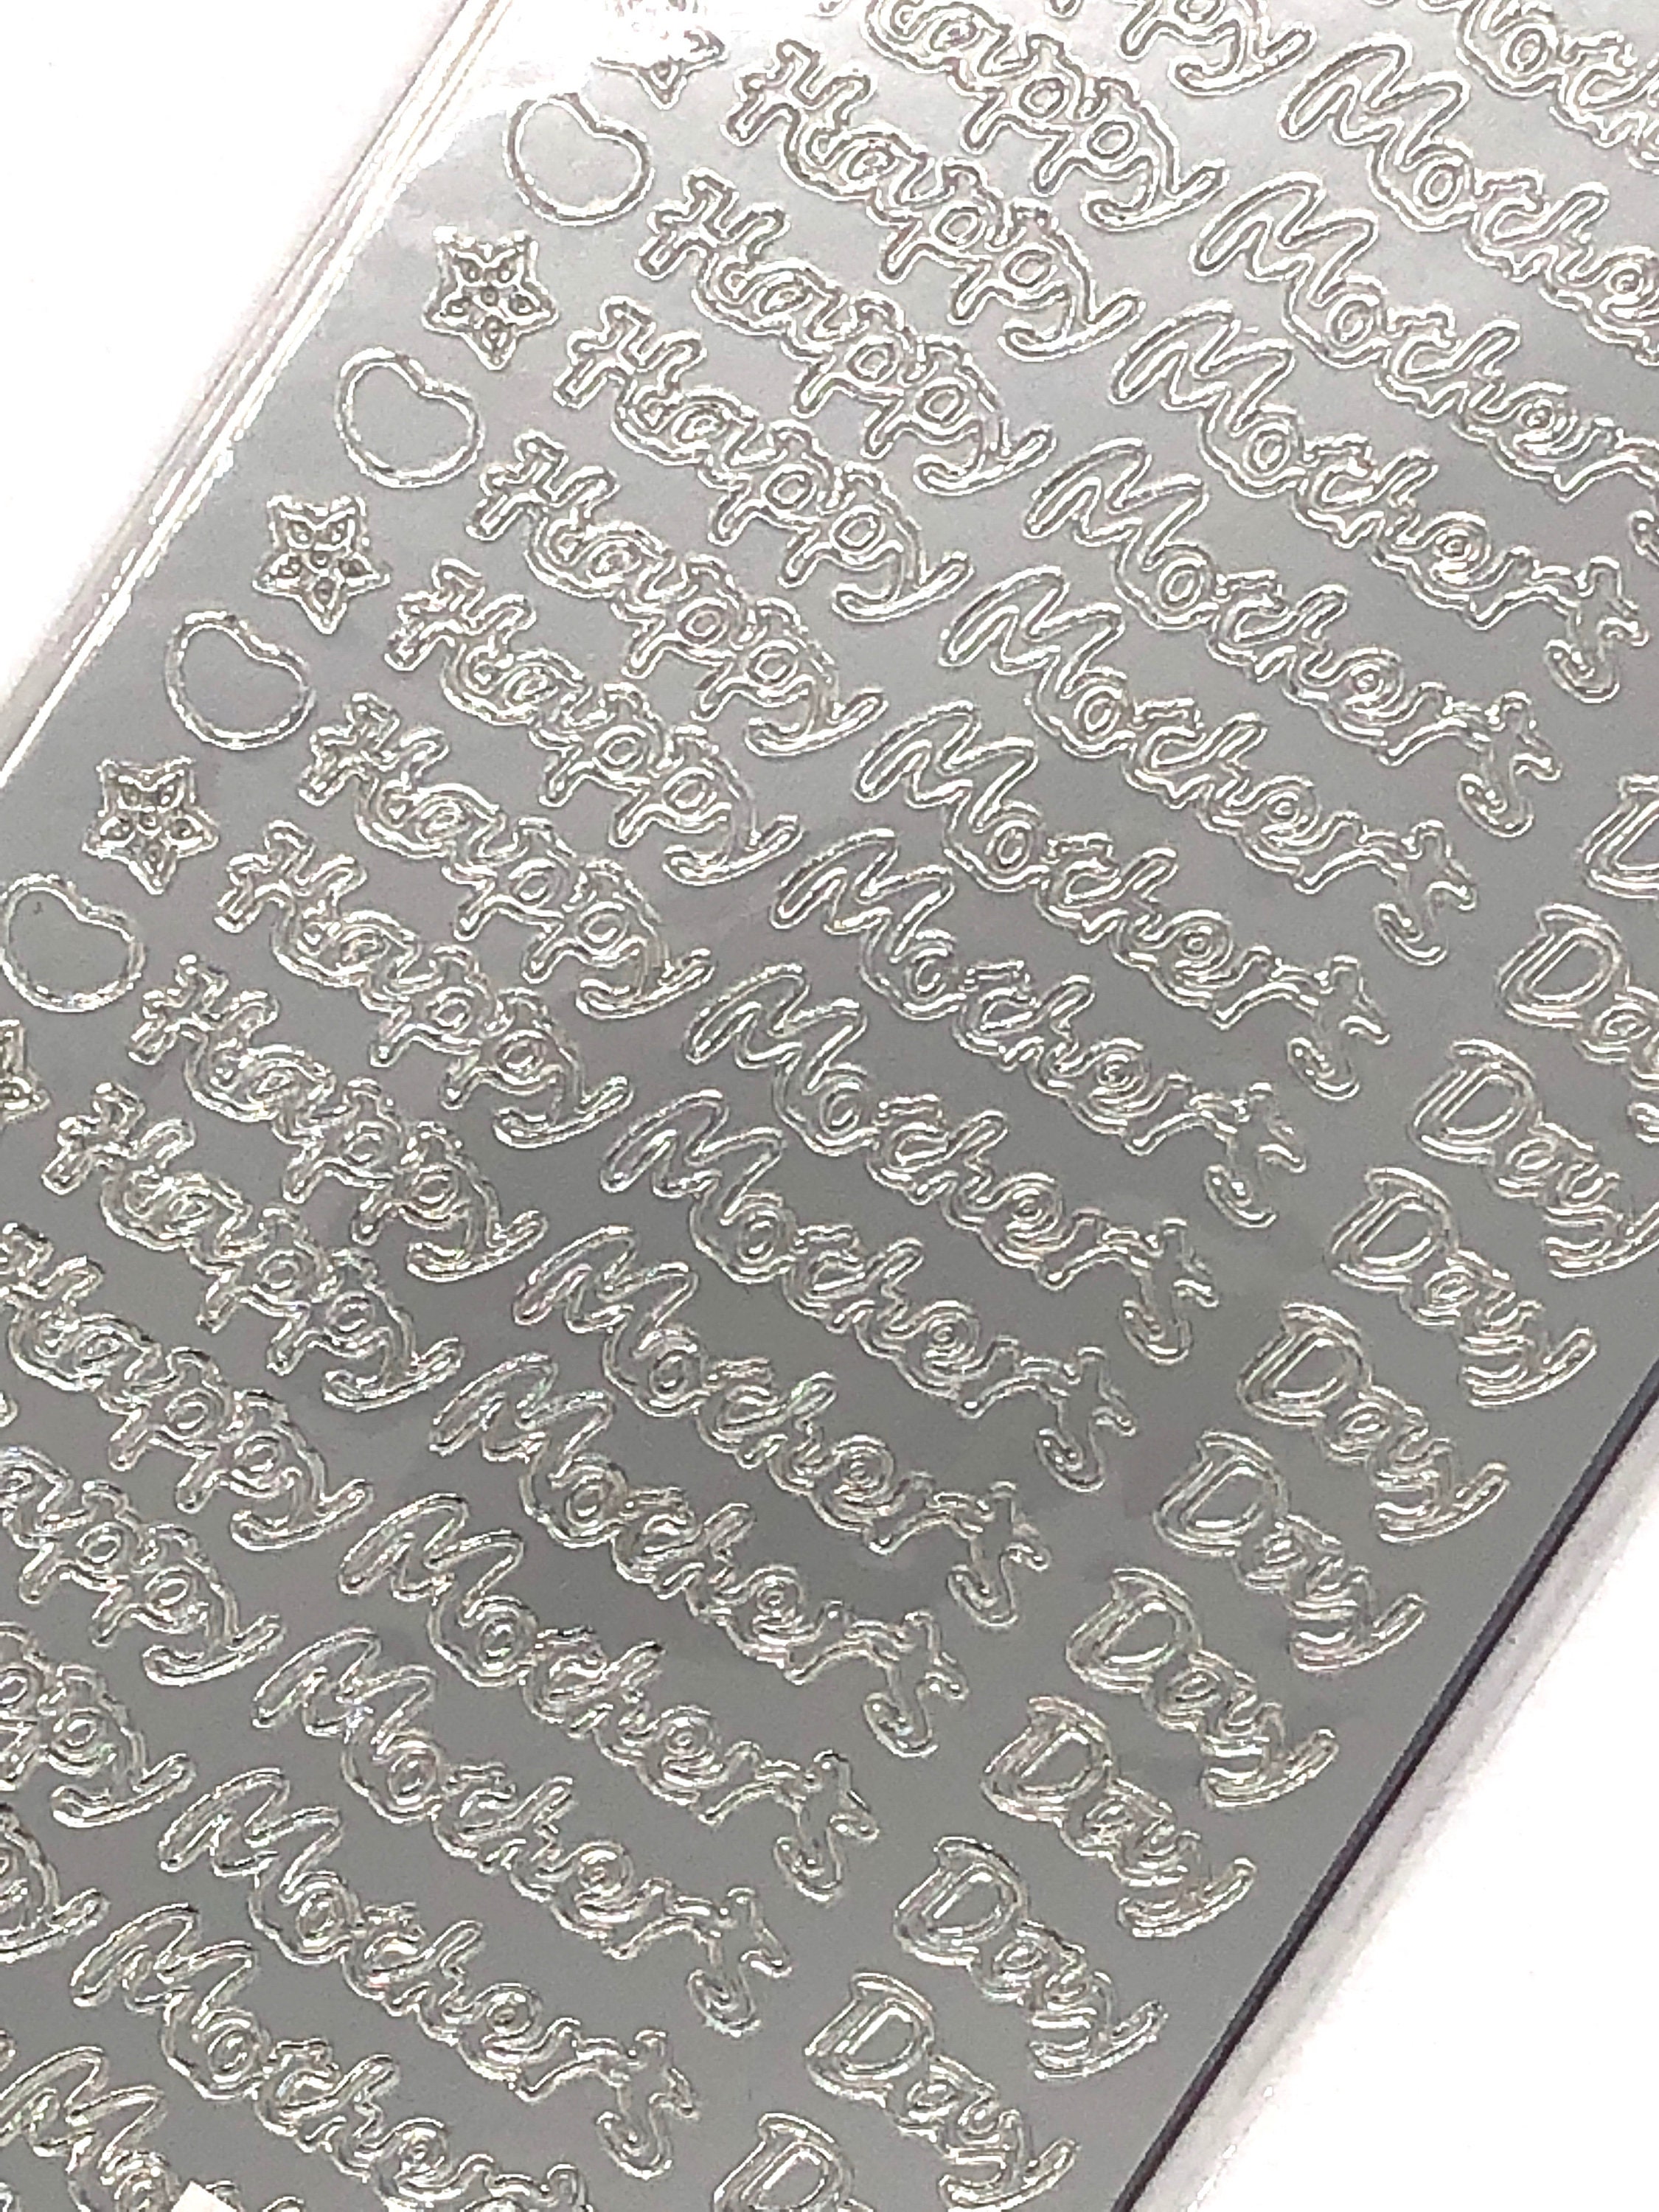 Happy Mother
Happy Mother's
Happy Mother's
Happy Mother's
Happy Mother's Day
Happy Mother's Day
Happy Mother's Day
Happy Mother's Day
Happy Mother's Day
Happy Mother's Day
Happy Mother's Day
appy Mother's Day
ppy Mother's
y Mother's
Mo